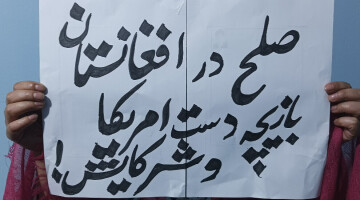 صلح در افغانستان
بازیچه دست امریکا
و شرکایش!